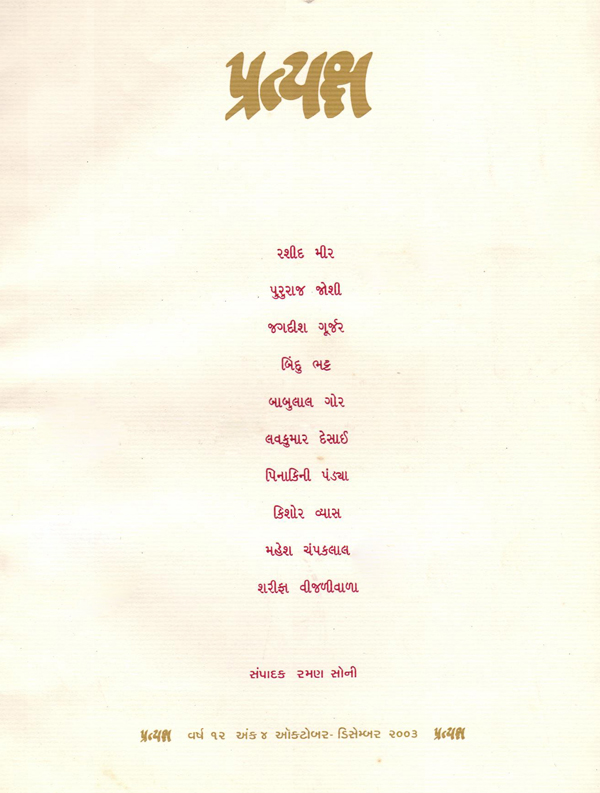 પ્રત્યક્ષ
રશીદ મીર
પુરુરાજ જોશી
જગદીશ ગૂર્જર
બિંદુ ભટ્ટ
બાબુલાલ ગોર
લવકુમાર દેસાઈ
પિનાકિની પંડ્યા
કિશોર વ્યાસ
મહેશ ચંપકલાલ
શરીફા વીજળીવાળા
સંપાદક રમણ સોની
પ્રત્યક્ષ વર્ષ ૧૨ અંક ૪ ઓક્ટોબર-ડિસેમ્બર ૨૦૦૩ પ્રત્યક્ષ